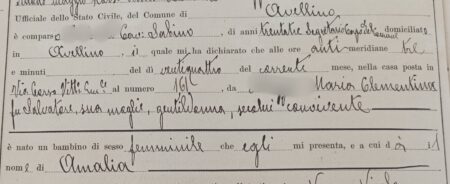 Ufficiale dello Stato Civile, del Comune di Avellino
è compars o Cav. Sabino di anni trentatre Segretario Capo del Comune domiciliato
in Avellino, il quale mi ha dichiarato che alle ore anti-meridiane tre
e minuti del dì ventiquattro del corrente mese, nella casa posta in
Via Corso Vitt. Em.le al numero 161, da Maria Clementina
fu Salvatore, sua moglie, gentildonna, seco lui convivente
è nato un bambino di sesso femminile che egli mi presenta, e a cui dà il
nome di Amalia